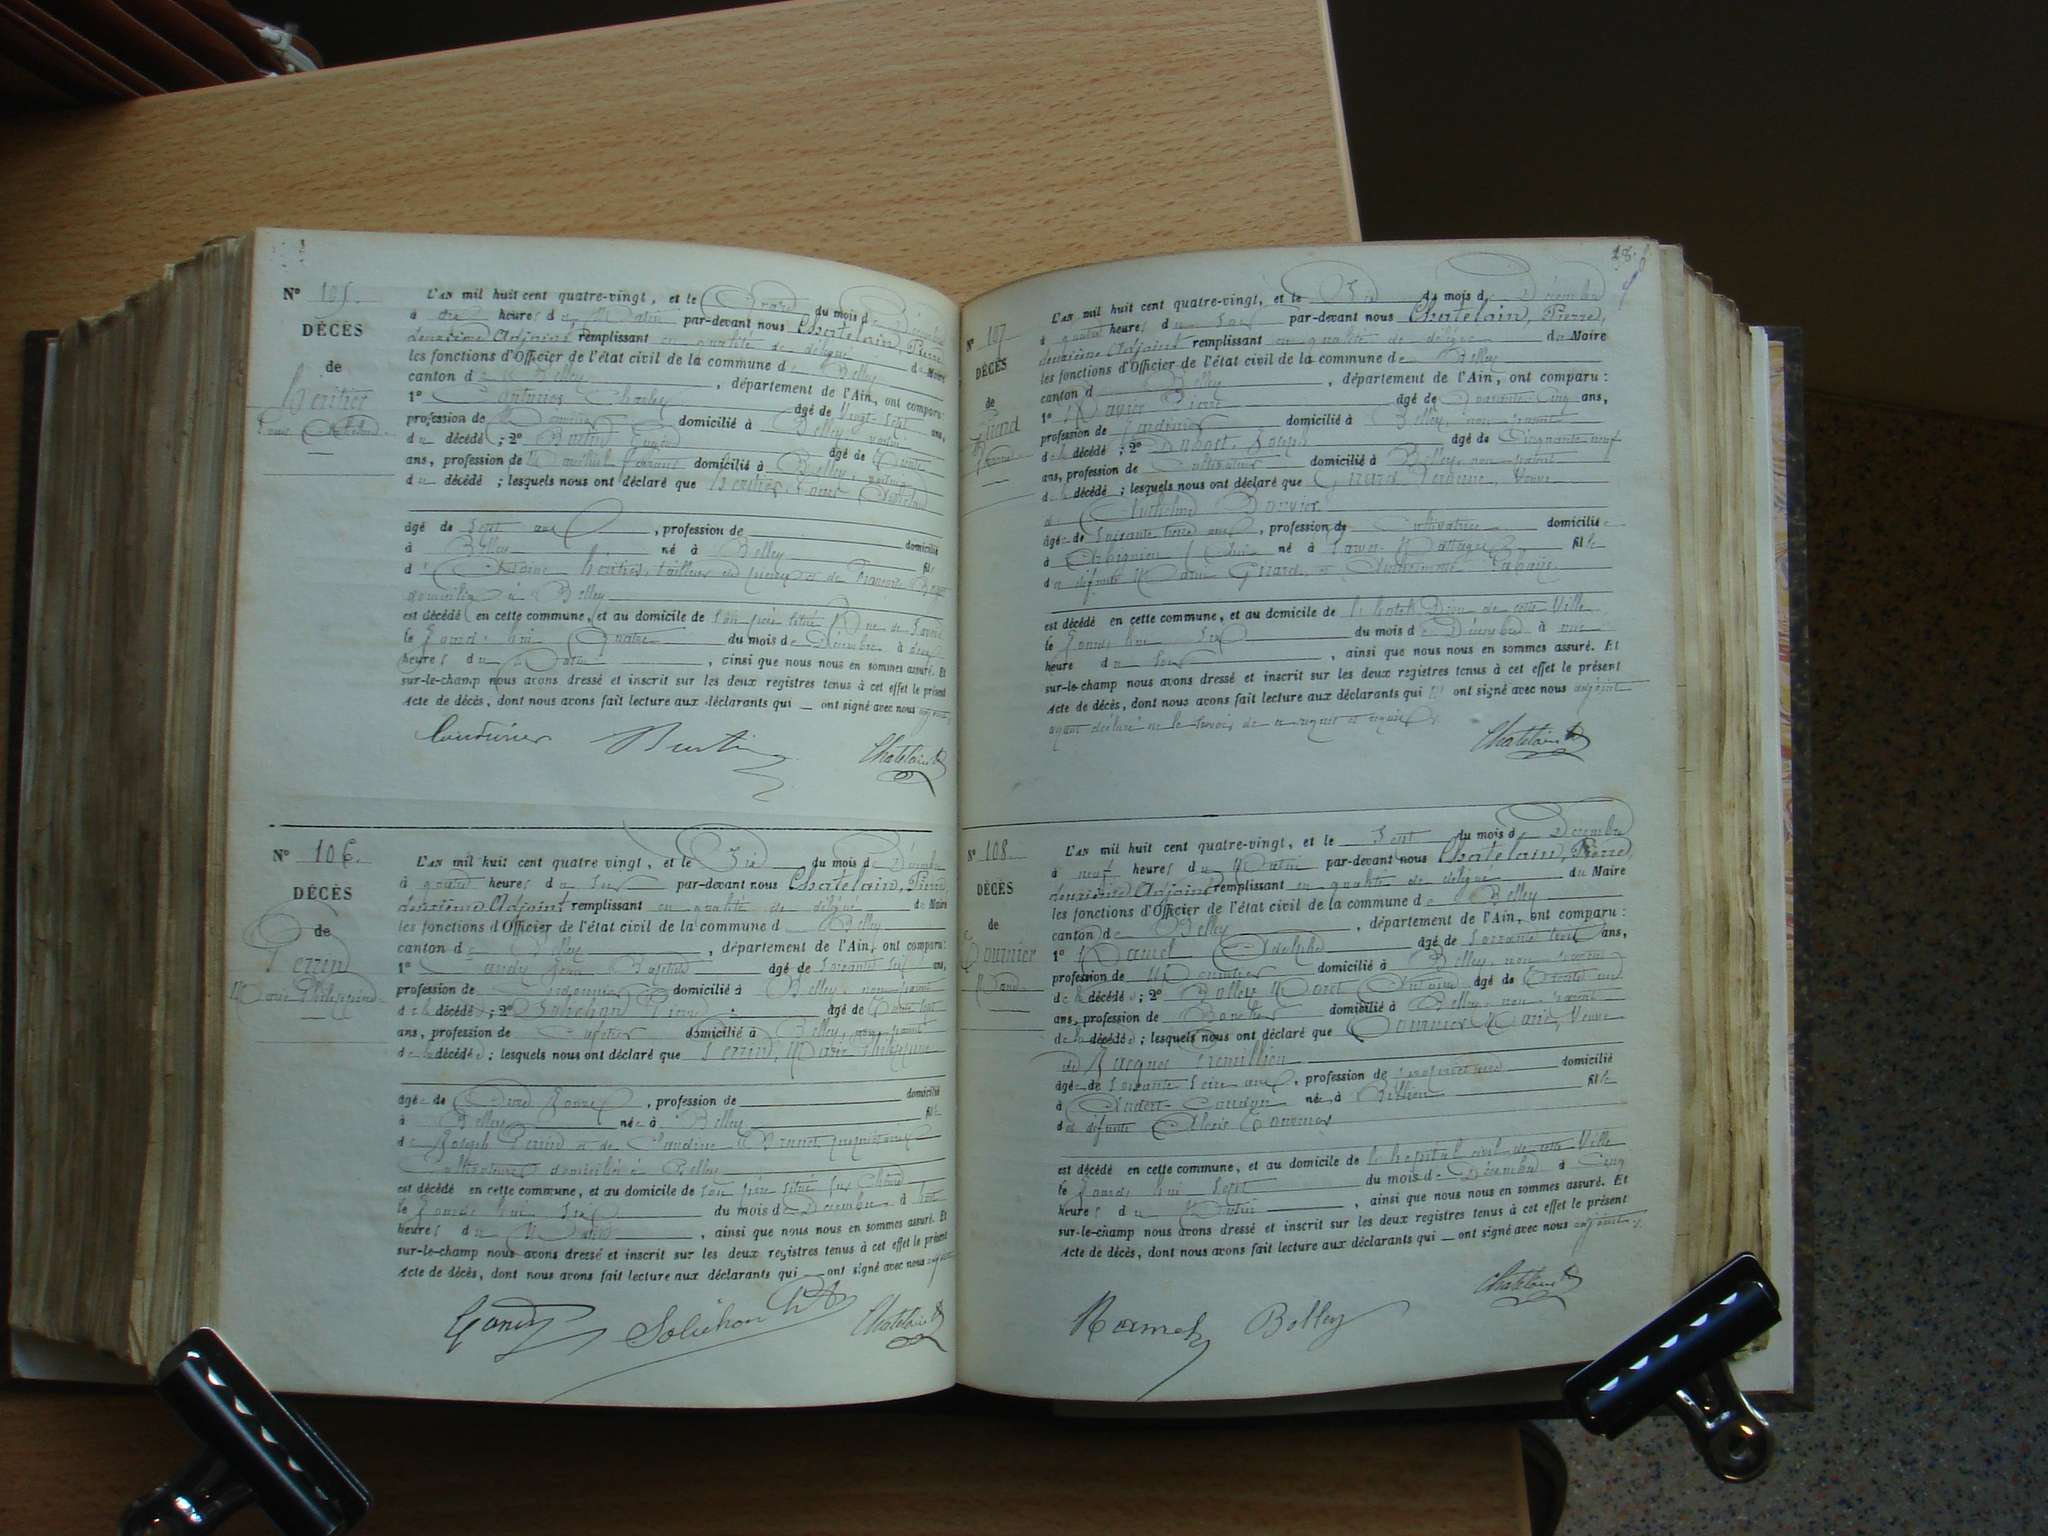 N° 105.
DÉCÈS
de
Héritier
L'AN mil huit cent quatre-vingt, et le quatre du mois de Décembre
à dix heures du Matin par-devant nous Chatelain, Pierre,
deuxième Adjoint remplissant en qualité de délégué du Maire
les fonctions d'Officier de l'état civil de la commune de Belley
canton de Belley, département de l'Ain, ont comparu:
1° Couturier Charles âgé de Vingt-sept ans,
profession de domicilié à Belley, voisin
du décédé; 2° Burtin Eugène âgé de trente
ans, profession de domicilié à Belley, voisin
du décédé; lesquels nous ont déclaré que Héritier
âgé de sept ans, profession de domicilié
à Belley né à Belley fils
d'Antoine Héritier, tailleur de pierres et de Françoise
domiciliés à Belley
est décédé en cette commune, et au domicile de son père situé Rue de Savoie
le jourd'hui quatre du mois de Décembre à deux
heures du Matin, ainsi que nous nous en sommes assuré. Et
sur-le-champ nous avons dressé et inscrit sur les deux registres tenus à cet effet le présent
Acte de décès, dont nous avons fait lecture aux déclarants qui — ont signé avec nous adjoint
Couturier Burtin Chatelain
N° 106.
DÉCÈS
de
Perrin
Marie Philippine
L'AN mil huit cent quatre vingt, et le Six du mois de Décembre
à quatre heures du Soir par-devant nous Chatelain, Pierre,
deuxième Adjoint remplissant en qualité de délégué du Maire
les fonctions d'Officier de l'état civil de la commune d Belley
canton de Belley, département de l'Ain, ont comparu:
1° Gandy Jean Baptiste âgé de soixante six ans,
profession de domicilié à Belley, non parent
de la décédée; 2° Solichon Pierre âgé de trente sept
ans, profession de domicilié à Belley, non parent
de la décédée; lesquels nous ont déclaré que Perrin, Marie Philippine
âgée de jours, profession de domicilié
à Belley née à Belley fille
de Joseph Perrin et de Claudine Brunet, propriétaires
Cultivateurs domiciliés à Belley
est décédé en cette commune, et au domicile de son père situé sur
le jourd'hui Six du mois de Décembre à huit
heures du Matin, ainsi que nous nous en sommes assuré. Et
sur-le-champ nous avons dressé et inscrit sur les deux registres tenus à cet effet le présent
Acte de décès, dont nous avons fait lecture aux déclarants qui — ont signé avec nous adjoint
Gandy Solichon Chatelain
N° 107
DÉCÈS
de
Guard
L'AN mil huit cent quatre-vingt, et le Six du mois de Décembre
à quatre heures du Soir par-devant nous Chatelain, Pierre,
deuxième Adjoint remplissant en qualité de délégué du Maire
les fonctions d'Officier de l'état civil de la commune de Belley
canton d Belley, département de l'Ain, ont comparu:
1° Pierre âgé de quarante cinq ans,
profession de Jardinier domicilié à Belley, non parent
de la décédé; 2° Dubost, Joseph âgé de Cinquante-neuf
ans, profession de Cultivateur domicilié à Belley, non parent
de la décédé; lesquels nous ont déclaré que Veuve
de Anthelme Bouvier
âgée de soixante treize ans, profession de Cultivatrice domiciliée
à Arbignieu (Ain) né à fille
du défunt et
est décédé en cette commune, et au domicile de l'hotel-Dieu de cette Ville
le jourd'hui Six du mois de Décembre à une
heure du soir, ainsi que nous nous en sommes assuré. Et
sur-le-champ nous avons dressé et inscrit sur les deux registres tenus à cet effet le présent
Acte de décès, dont nous avons fait lecture aux déclarants qui ont signé avec nous adjoint
ayant déclaré ne le savoir de ce requis
Chatelain
N° 108.
DÉCÈS
de
Marie
L'AN mil huit cent quatre-vingt, et le Sept du mois de Décembre
à neuf heures du Matin par-devant nous Chatelain, Pierre,
deuxième Adjoint remplissant en qualité de délégué du Maire
les fonctions d'Officier de l'état civil de la commune de Belley
canton de Belley, département de l'Ain, ont comparu:
1° Ramel Adolphe âgé de soixante trois ans,
profession de domicilié à Belley, non parent
de la décédée; 2° Antoine âgé de trente un
ans, profession de domicilié à Belley, non parent
de la décédée; lesquels nous ont déclaré que Marie, Veuve
de Jacques
âgée de soixante seize ans, profession de domicilié
à née à fille
de défunt Alexis
est décédé en cette commune, et au domicile de l'hopital civil de cette Ville
le jourd'hui Sept du mois de Décembre à Cinq
heures du Matin, ainsi que nous nous en sommes assuré. Et
sur-le-champ nous avons dressé et inscrit sur les deux registres tenus à cet effet le présent
Acte de décès, dont nous avons fait lecture aux déclarants qui — ont signé avec nous adjoint
Chatelain
Ramel Bolley